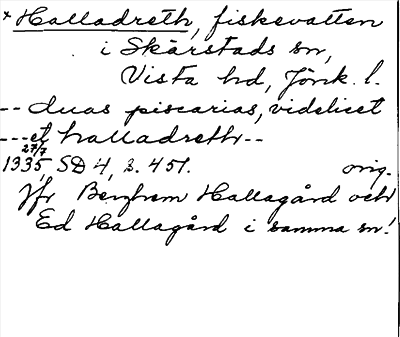 × Halladreth, fiskevatten
i Skärstads sn,
Vista hd, Jönk. l.
-- duas piscarias, videlicet
--- et halladreth --
27/7
1335, SD 4, s. 451. orig.
Jfr Berghem Hallagård och
Ed Hallagård i samma sn!